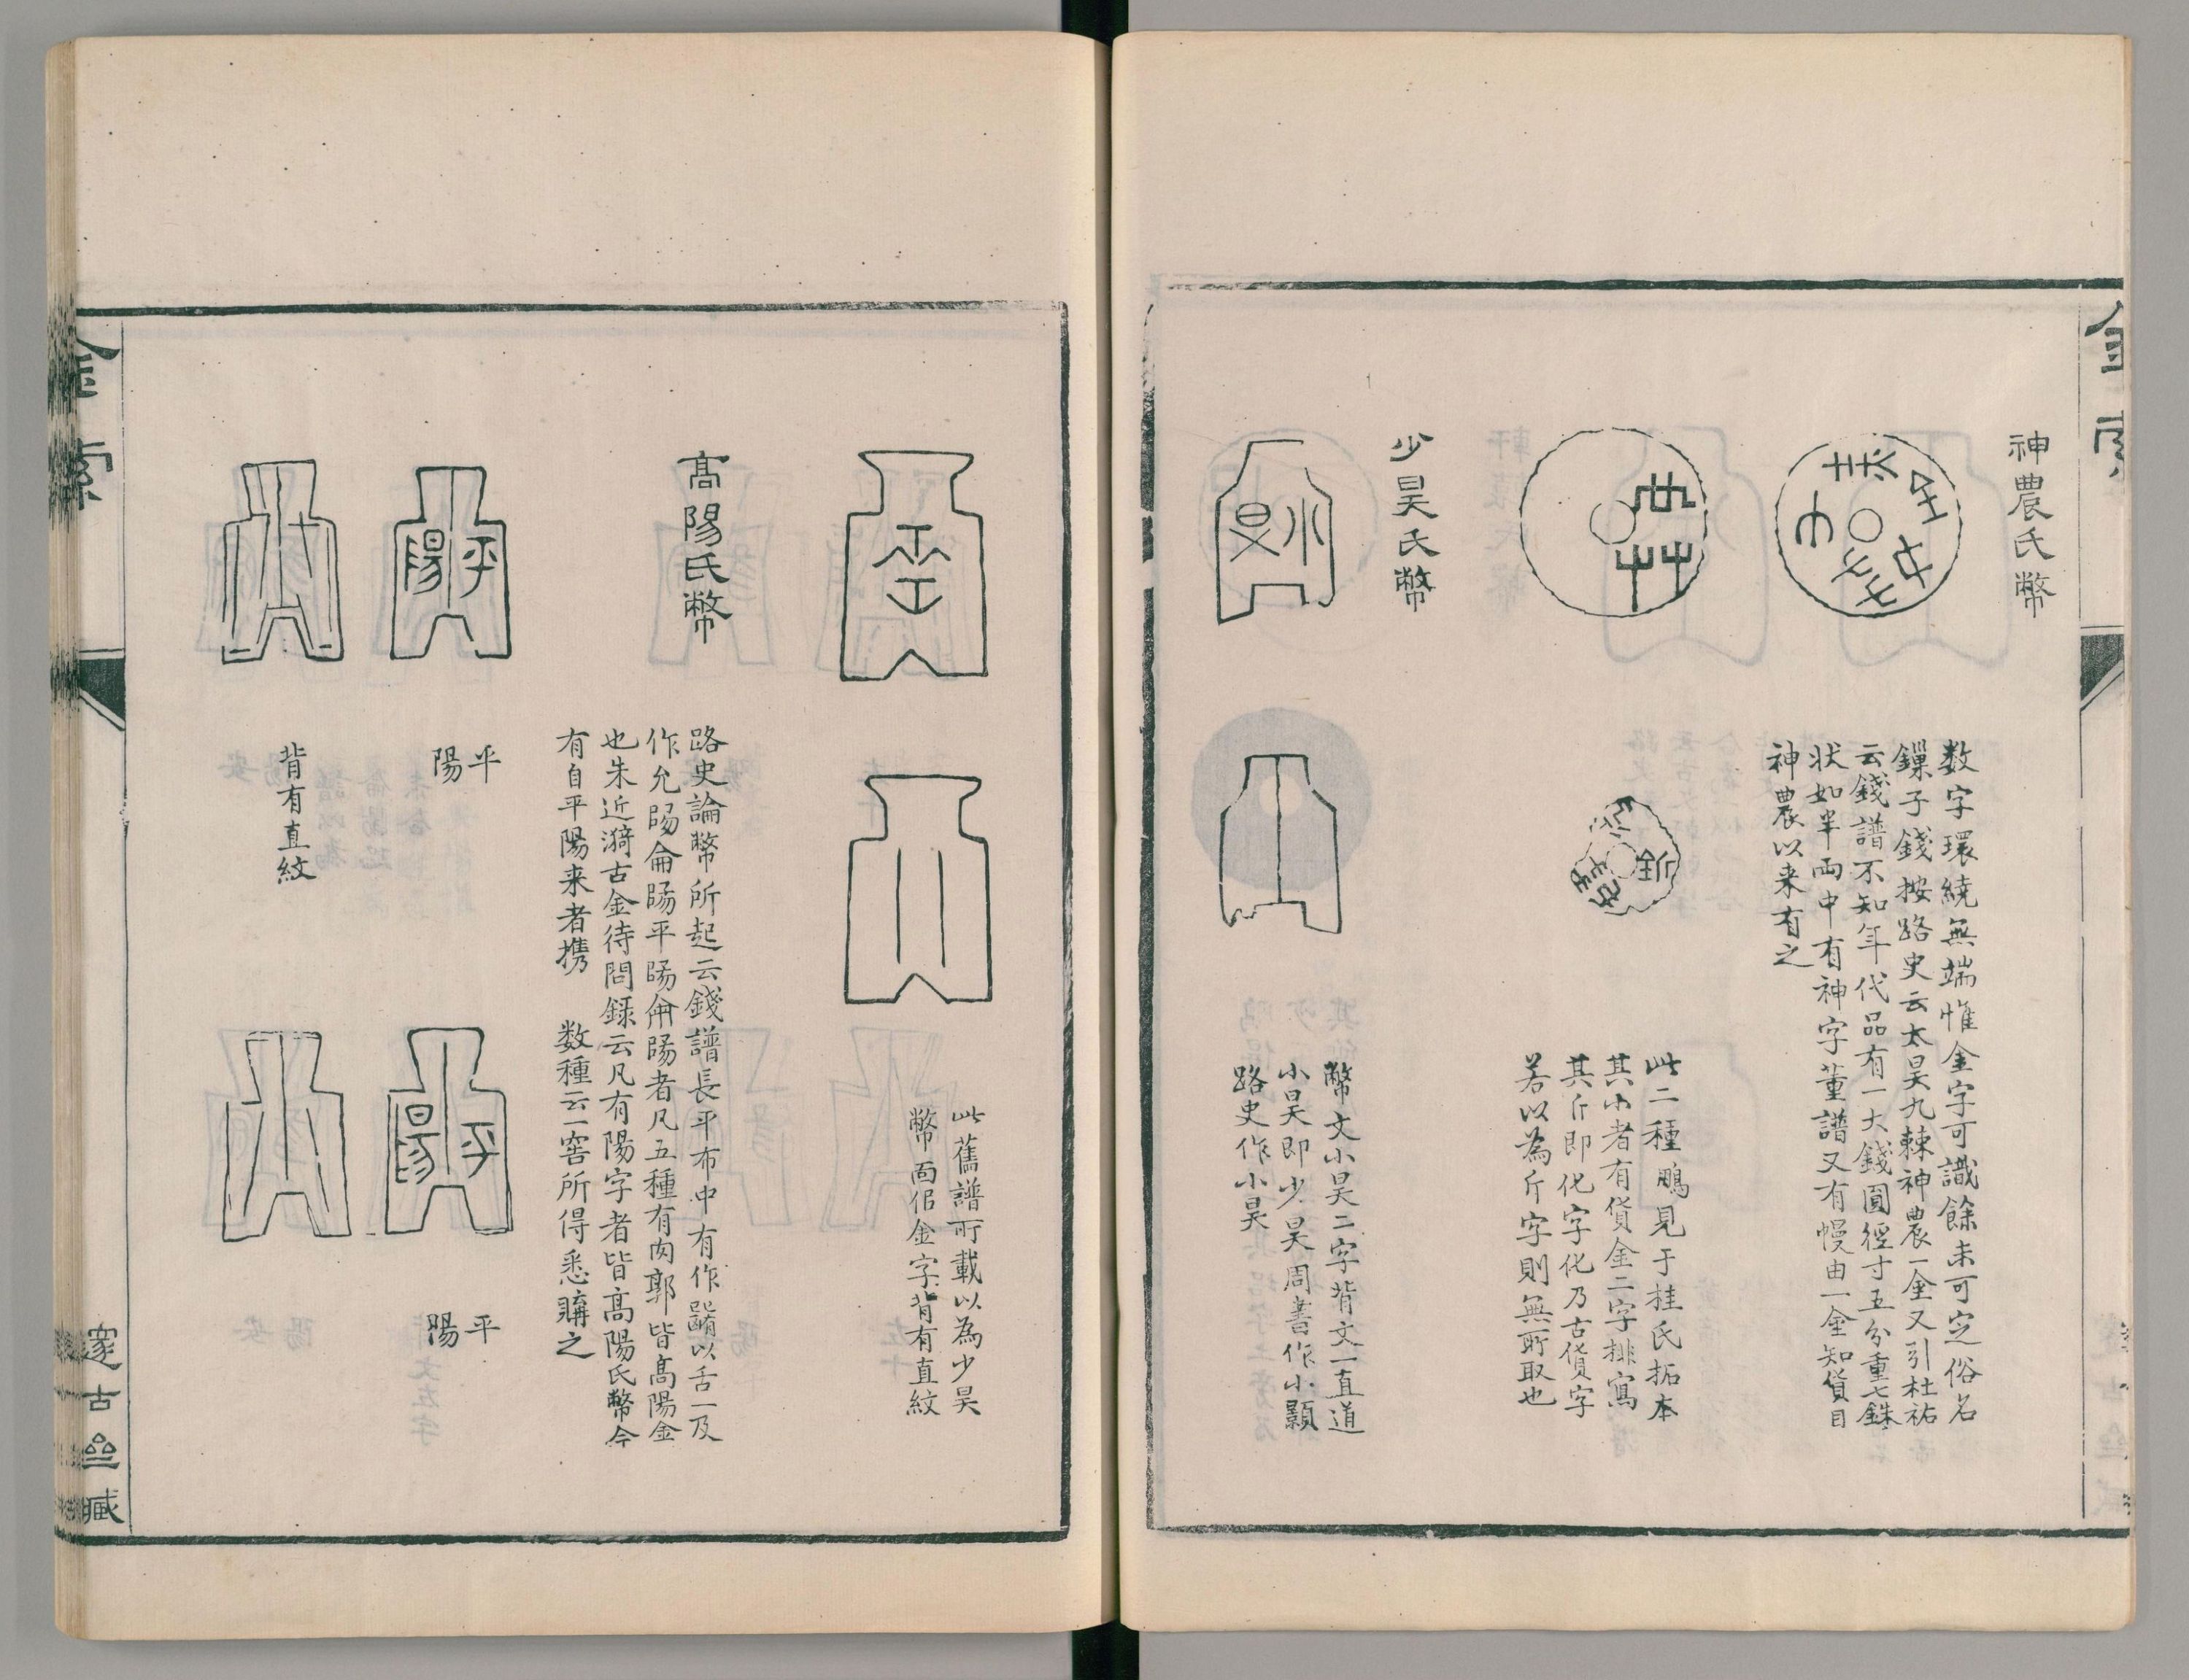 金索
神農氏幣
数字環繞無端惟金字可識餘未可定俗名
鏁子錢按路史云太昊九棘神農一金又引杜祐
云錢譜不知年代品有一大錢圓徑寸五分重七銖
状如半両中有神字董譜又有幔由一金知貨目
神農以来有之
此二種鵰見于桂氏拓本
其小者有貨金二字排寫
其斤即化字化乃古貨字
若以為斤字則無所取也
少昊氏幣
小昊
幣文小昊二字背文一直道
小昊即少昊周書作小顥
路史作小昊
此舊譜所載以為少昊
幣面佀金字背有直紋
高陽氏幣
路史論幣所起云錢譜長平布中有作以舌一及
作允陽侖陽平陽陽者凡五種有肉郭皆高陽金
也朱近漪古金待問錄云凡有陽字者皆高陽氏幣今
有自平陽来者携 数種云一窖所得悉購之
平陽
平陽
背有直紋
平陽
平陽
金索
邃古亝臧